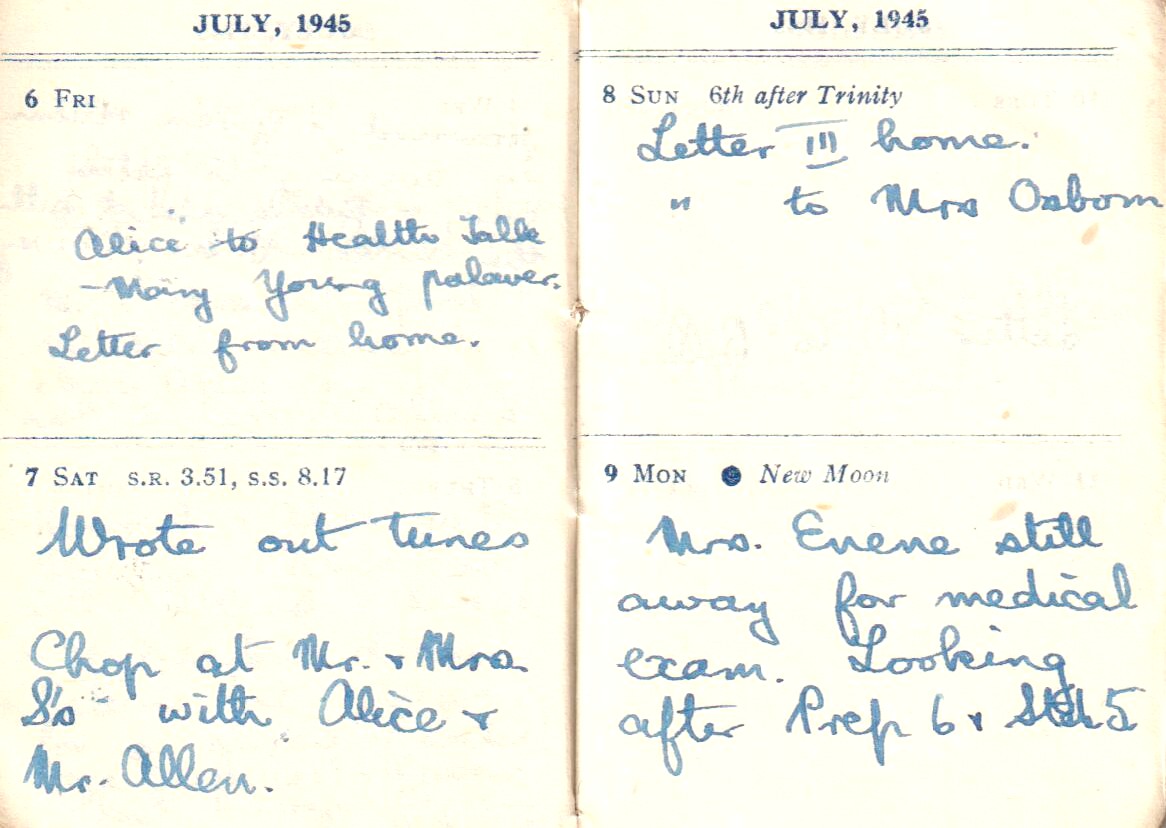 JULY, 1945
6 FRI
Alice to Health Talk
- Mary Young palaver.
Letter from home.
7 SAT S.R. 3.51, S.S. 8.17
Wrote out tunes
Chop at Mr. & Mrs
S's with Alice &
Mr. Allen.
JULY, 1945
8 SUN 6th after Trinity
Letter III home.
" to Mrs Osborn
9 MON ● New Moon
Mrs. Enene still
away for medical
exam. Looking
after Prep 6 & Std 5